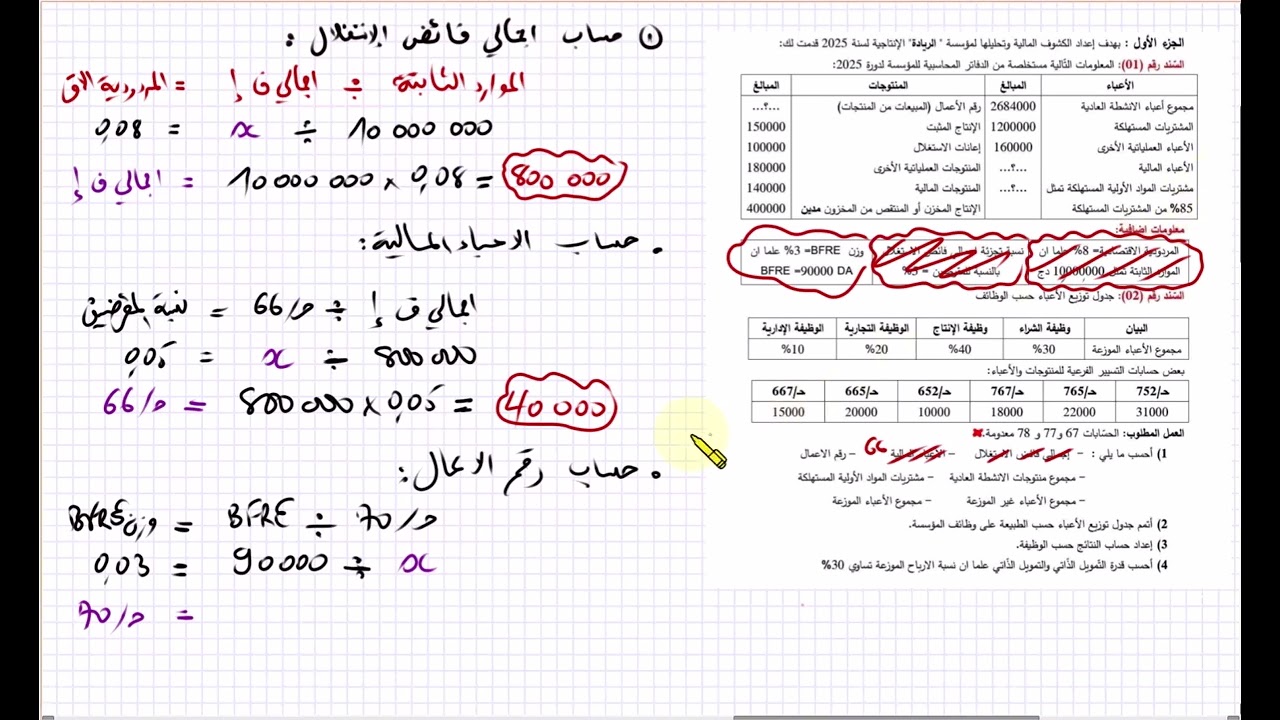 ① حساب اجمالي فائض الإستغلال :
المردودية الاق = اجمالي ف إ ÷ الموارد الثابتة
0,08 = x ÷ 10 000 000
اجمالي ف إ = 10 000 000 x 0,08 = 800 000
• حساب الاعباء المالية :
نسبة المقرضين = ح/66 ÷ اجمالي ف إ
0,05 = x ÷ 800 000
ح/66 = 800 000 x 0,05 = 40 000
• حساب رقم الاعمال :
وزن BFRE = BFRE ÷ ح/70
0,03 = 90000 ÷ x
ح/70 =
الجزء الأول : بهدف إعداد الكشوف المالية وتحليلها لمؤسسة " الريادة" الإنتاجية لسنة 2025 قدمت لك:
السّند رقم (01): المعلومات التّالية مستخلصة من الدفاتر المحاسبية للمؤسسة لدورة 2025:
الأعباء المبالغ المنتوجات المبالغ
مجموع أعباء الانشطة العادية 2684000 رقم الأعمال (المبيعات من المنتجات) ...؟...
المشتريات المستهلكة 1200000 الإنتاج المثبت 150000
الأعباء العملياتية الأخرى 160000 إعانات الاستغلال 100000
الأعباء المالية ...؟... المنتوجات العملياتية الأخرى 180000
مشتريات المواد الأولية المستهلكة تمثل ...؟... المنتوجات المالية 140000
85% من المشتريات المستهلكة الإنتاج المخزن أو المنتقص من المخزون مدين 400000
معلومات اضافية:
المردودية الاقتصادية= 8% علما ان نسبة تجزئة اجمالي فائض الاستغلال وزن BFRE= 3% علما ان
الموارد الثابتة تمثل 10000000 دج بالنسبة للمقرضين = 5% BFRE =90000 DA
السّند رقم (02): جدول توزيع الأعباء حسب الوظائف
البيان وظيفة الشراء وظيفة الإنتاج الوظيفة التجارية الوظيفة الإدارية
مجموع الأعباء الموزعة 30% 40% 20% 10%
بعض حسابات التسيير الفرعية للمنتوجات والأعباء:
حـ/752 حـ/765 حـ/767 حـ/652 حـ/665 حـ/667
31000 22000 18000 10000 20000 15000
العمل المطلوب: الحسّابات 67 و77 و 78 معدومة.
1) أحسب ما يلي : – إجمالي فائض الاستغلال – الأعباء المالية 66 – رقم الاعمال
– مجموع منتوجات الانشطة العادية – مشتريات المواد الأولية المستهلكة
– مجموع الأعباء غير الموزعة – مجموع الأعباء الموزعة
2) أتمم جدول توزيع الأعباء حسب الطبيعة على وظائف المؤسسة.
3) إعداد حساب النتائج حسب الوظيفة.
4) أحسب قدرة التّمويل الذّاتي والتمويل الذّاتي علما ان نسبة الارباح الموزعة تساوي 30%